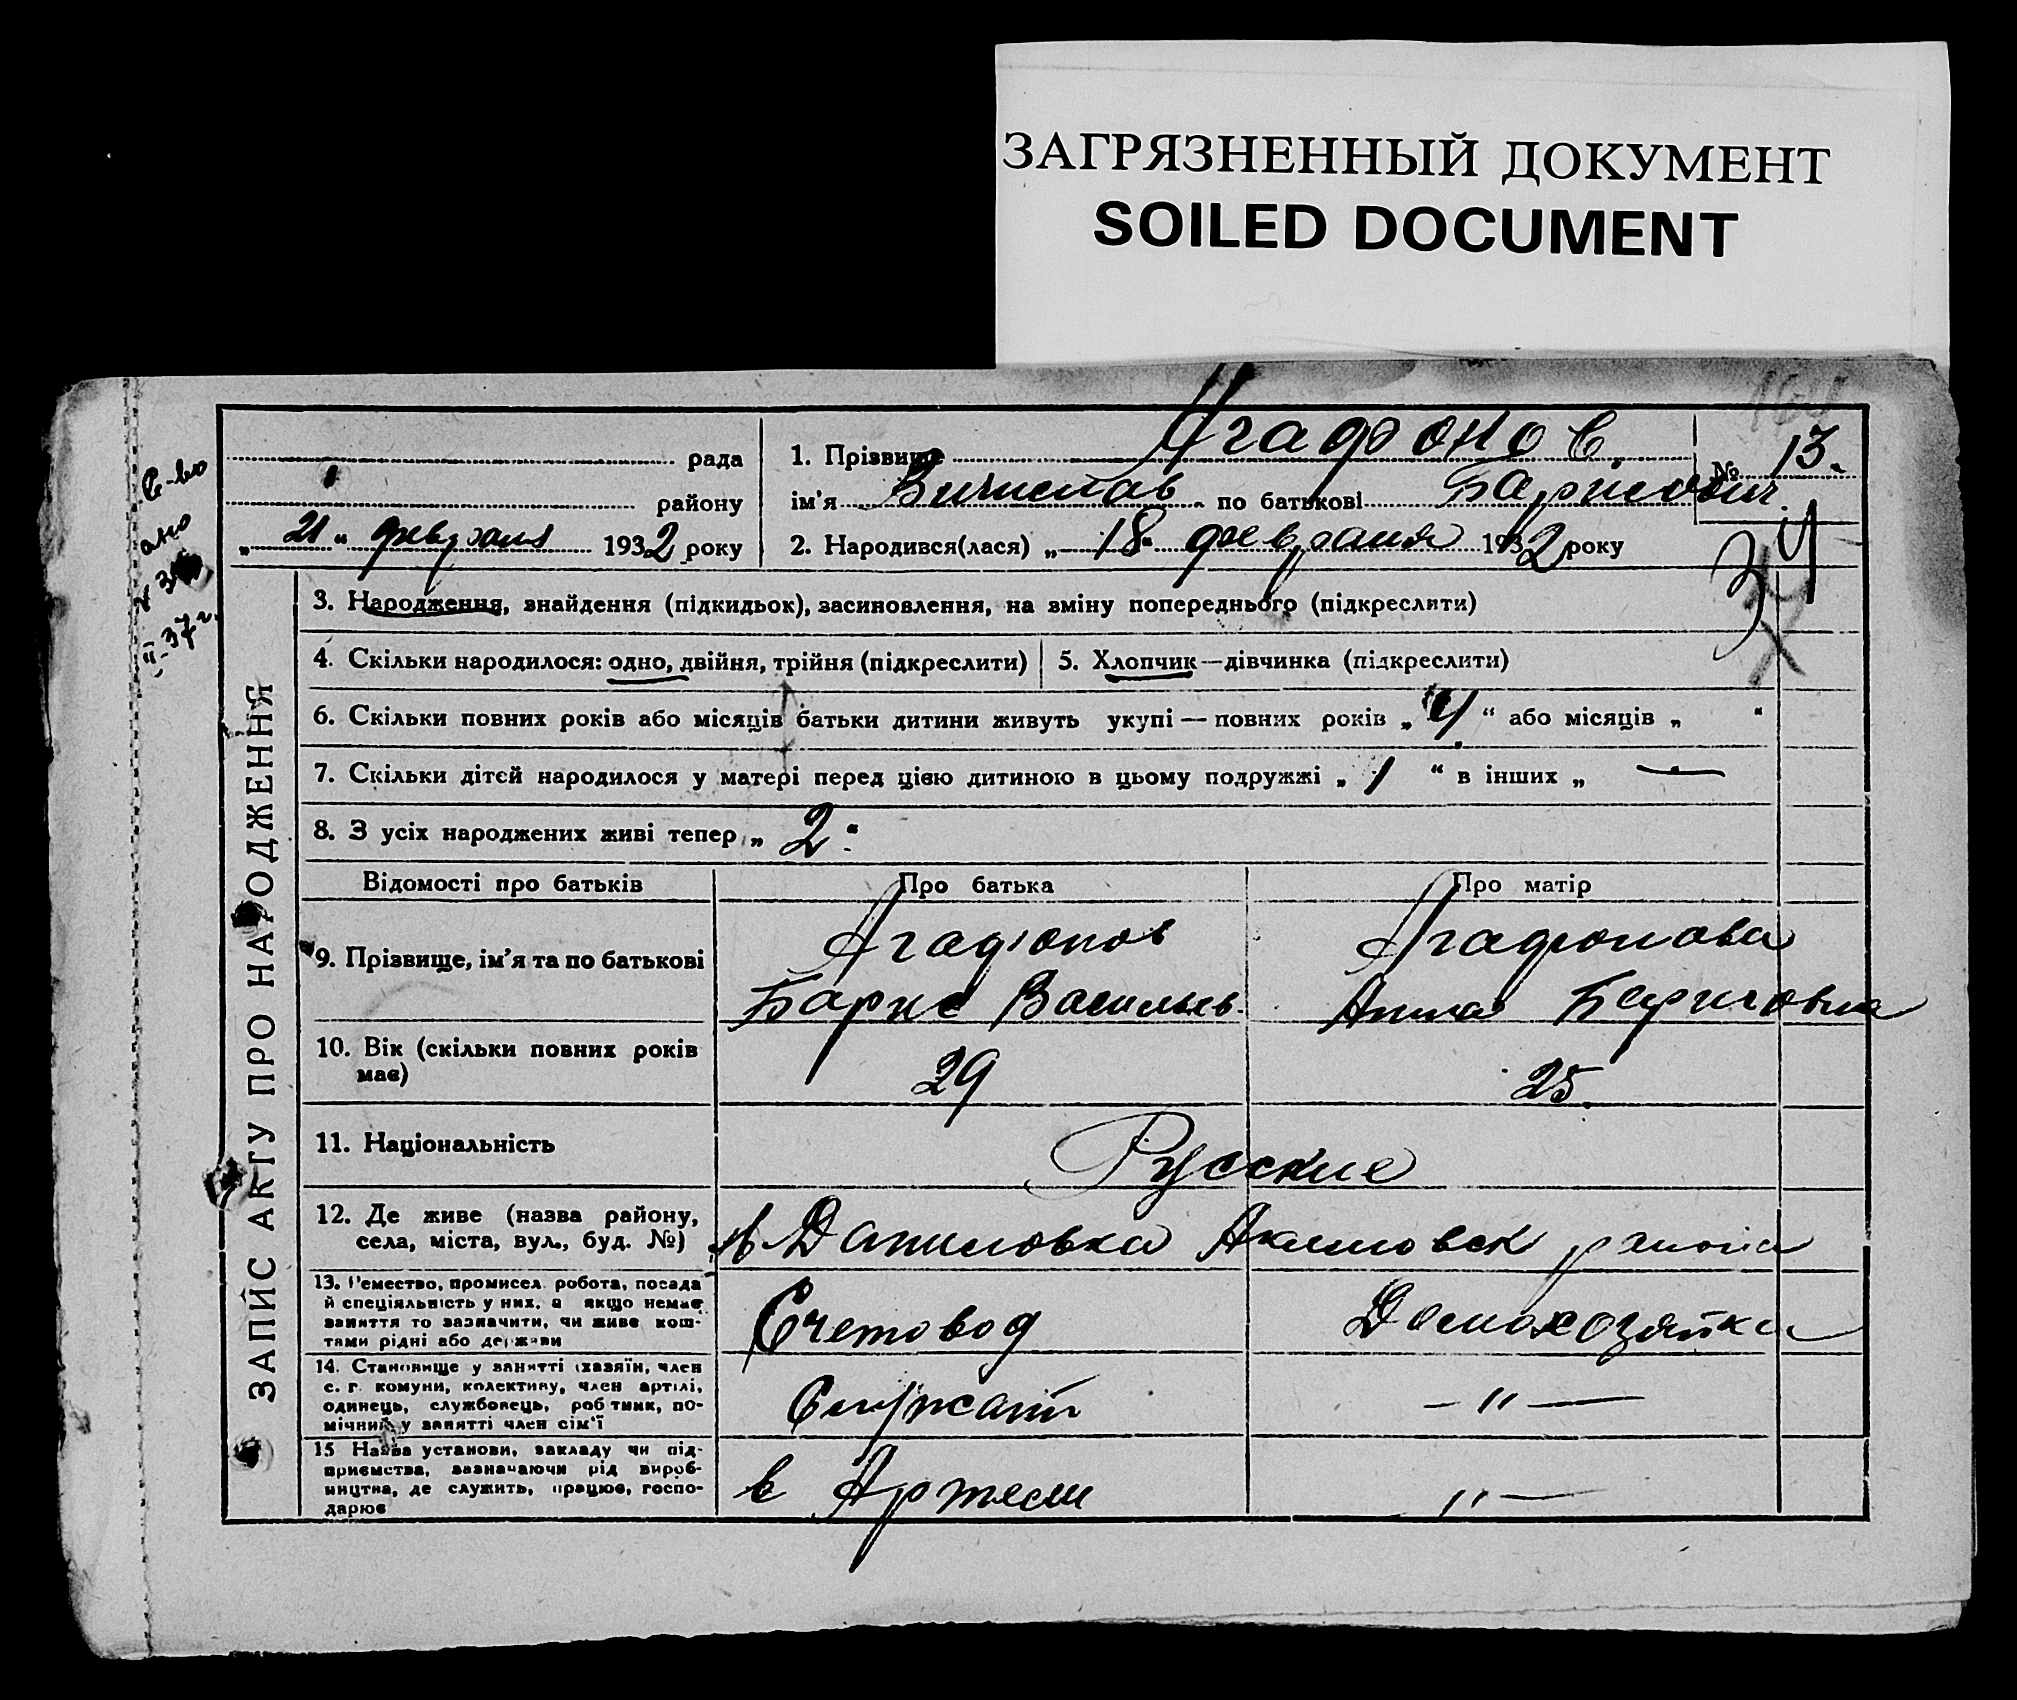 ЗАГРЯЗНЕННЫЙ ДОКУМЕНТ
SOILED DOCUMENT
рада
району
„ 21 “ февраля 1932 року
1. Прізвище Агафонов
ім'я по батькові Барисович
№ 13.
2. Народився(лася) „ 18 “ февраля 1932 року
34
ЗАПИС АКТУ ПРО НАРОДЖЕННЯ
3. Народження, знайдення (підкидьок), засиновлення, на зміну попереднього (підкреслити)
4. Скільки народилося: одно, двійня, трійня (підкреслити)
5. Хлопчик—дівчинка (підкреслити)
6. Скільки повних років або місяців батьки дитини живуть укупі — повних років „ 4 “ або місяців „ “
7. Скільки дітей народилося у матері перед цією дитиною в цьому подружжі „ 1 “ в інших „ —
8. З усіх народжених живі тепер „ 2 “
Відомості про батьків
Про батька
Про матір
9. Прізвище, ім'я та по батькові
Агафонов
Барис Васильев.
Агафонова
Анна Барисовна
10. Вік (скільки повних років
має)
29
25.
11. Національність
Русские
12. Де живе (назва району,
села, міста, вул., буд. №)
Даниловка Акимовск района
13. Ремество, промисел, робота, посада
й спеціяльність у них, а якщо немає
заняття то зазначити, чи живе кош-
тами рідні або держави
Счетовод
Домохозяйка
14. Становище у занятті (хазяїн, член
с. г. комуни, колективу, член артілі,
одинець, службовець, робітник, по-
мічний у занятті член сім'ї
Служащ
— " —
15 Назва установи, закладу чи під-
приємства, зазначаючи рід вироб-
ництва, де служить, працює, госпо-
дарює
в Артели
" —
С-во
37 г.